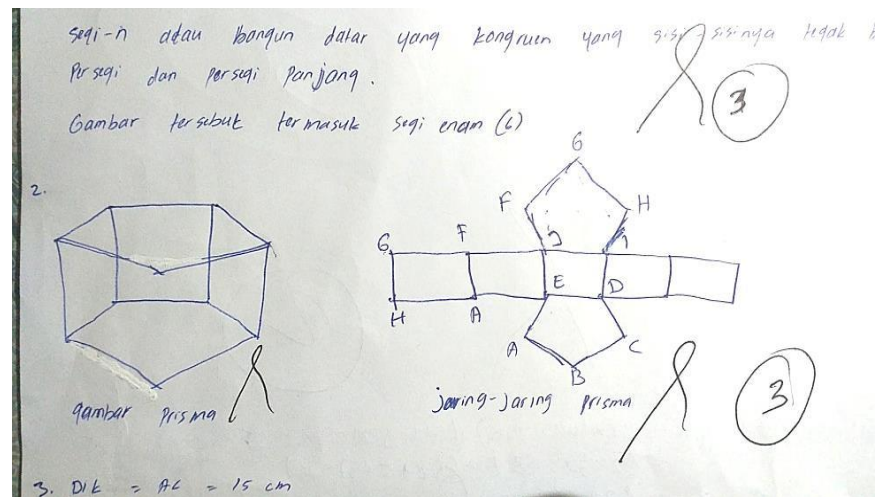 segi-n atau bangun datar yang kongruen yang sisi-sisinya tegak
Persegi dan persegi Panjang.
Gambar tersebut termasuk segi enam (6)
3
2.
G
F H
G F J I
E D
H A
A C
B
gambar Prisma
jaring-jaring Prisma
3
3. Dik = AC = 15 cm